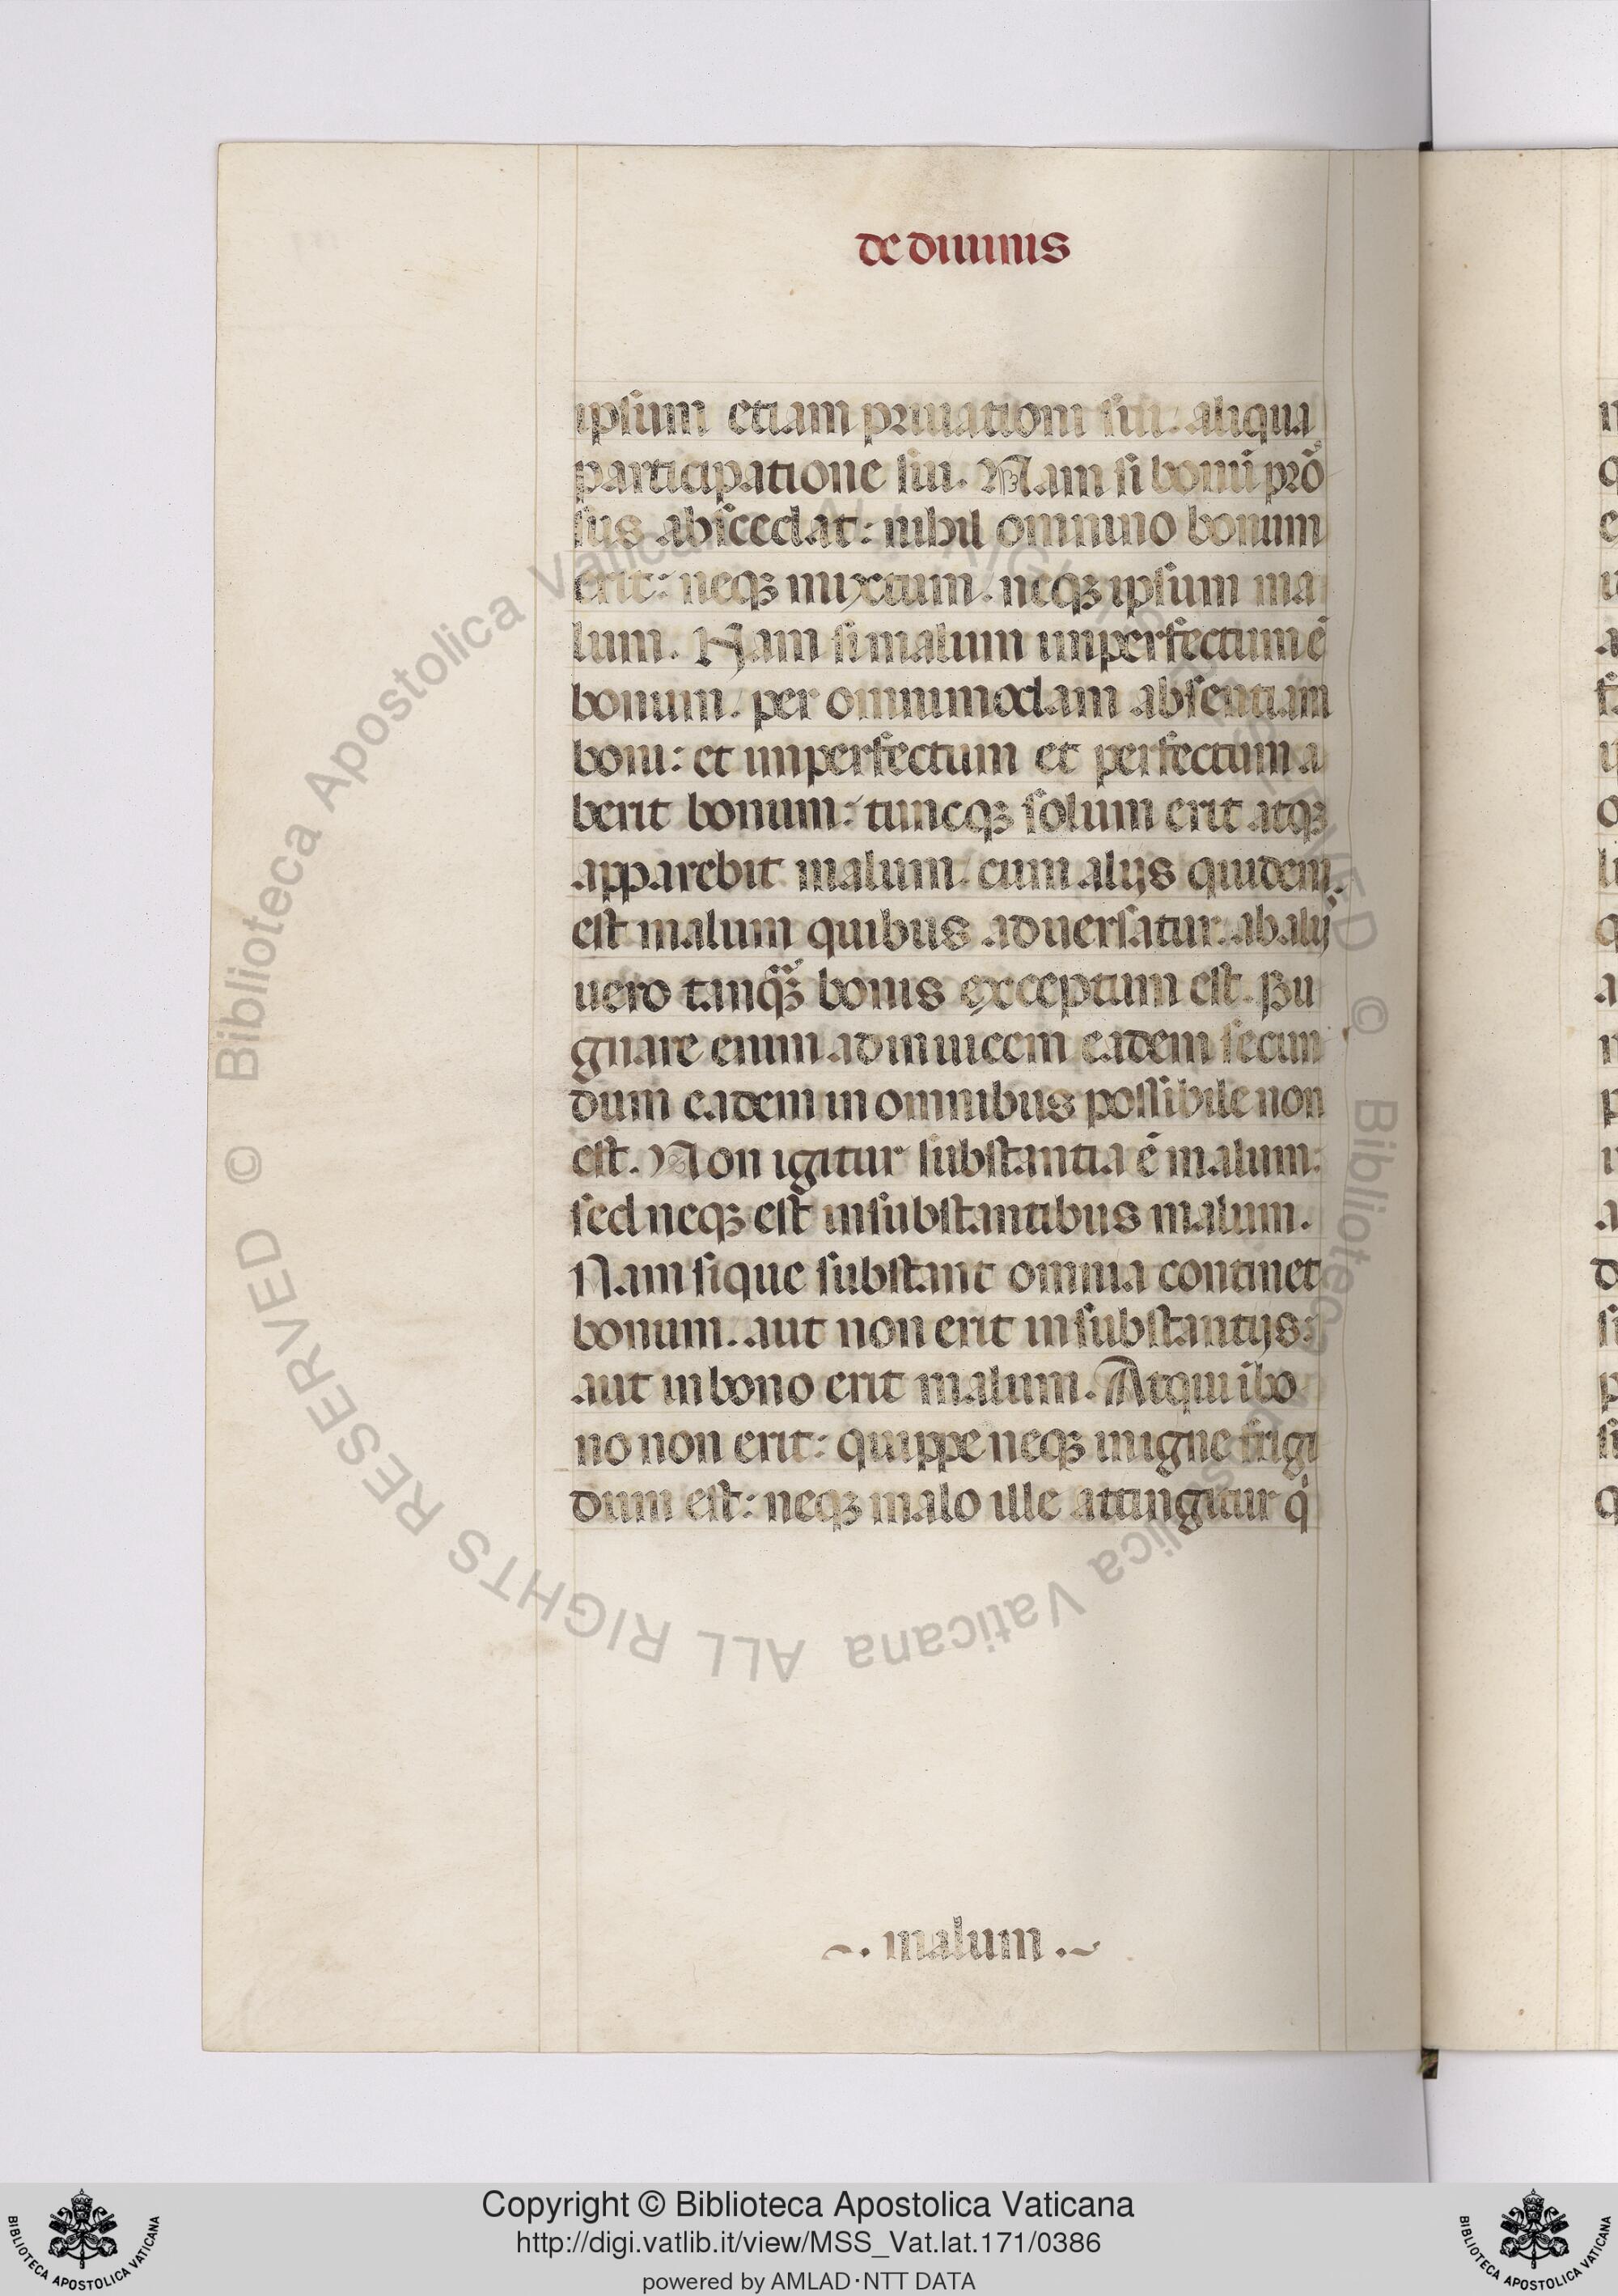 de diuinis
ipsum etiam priuationi sui: aliqua
participatione sui. Nam si bonū prō
sus abscedat: nihil omnino bonum
erit: neqꝫ mixtum. neqꝫ ipsum ma
lum. Nam si malum imperfectum ē
bonum. per omnimodam absentiam
boni: et imperfectum et perfectum a
berit bonum: tuncqꝫ solum erit atqꝫ
apparebit malum. cum alijs quidem.
est malum quibus aduersatur. ab alij
uero tanqꝫ bonis exceptum est. Pu
gnare enim adinuicem eadem secun
dum eadem in omnibus possibile non
est. Non igitur substantia ē malum:
sed neqꝫ est insubstantibus malum.
Nam si que substant omnia continet
bonum. aut non erit in substantijs:
aut in bono erit malum. Atqui ībo
no non erit: quippe neqꝫ in igne frigi
dum est: neqꝫ malo ille attingitur q
~. malum .~
© Biblioteca Apostolica Vaticana ALL RIGHTS RESERVED © Biblioteca Apostolica Vaticana ALL RIGHTS RESERVED
Copyright © Biblioteca Apostolica Vaticana
http://digi.vatlib.it/view/MSS_Vat.lat.171/0386
powered by AMLAD·NTT DATA
BIBLIOTECA APOSTOLICA VATICANA
BIBLIOTECA APOSTOLICA VATICANA